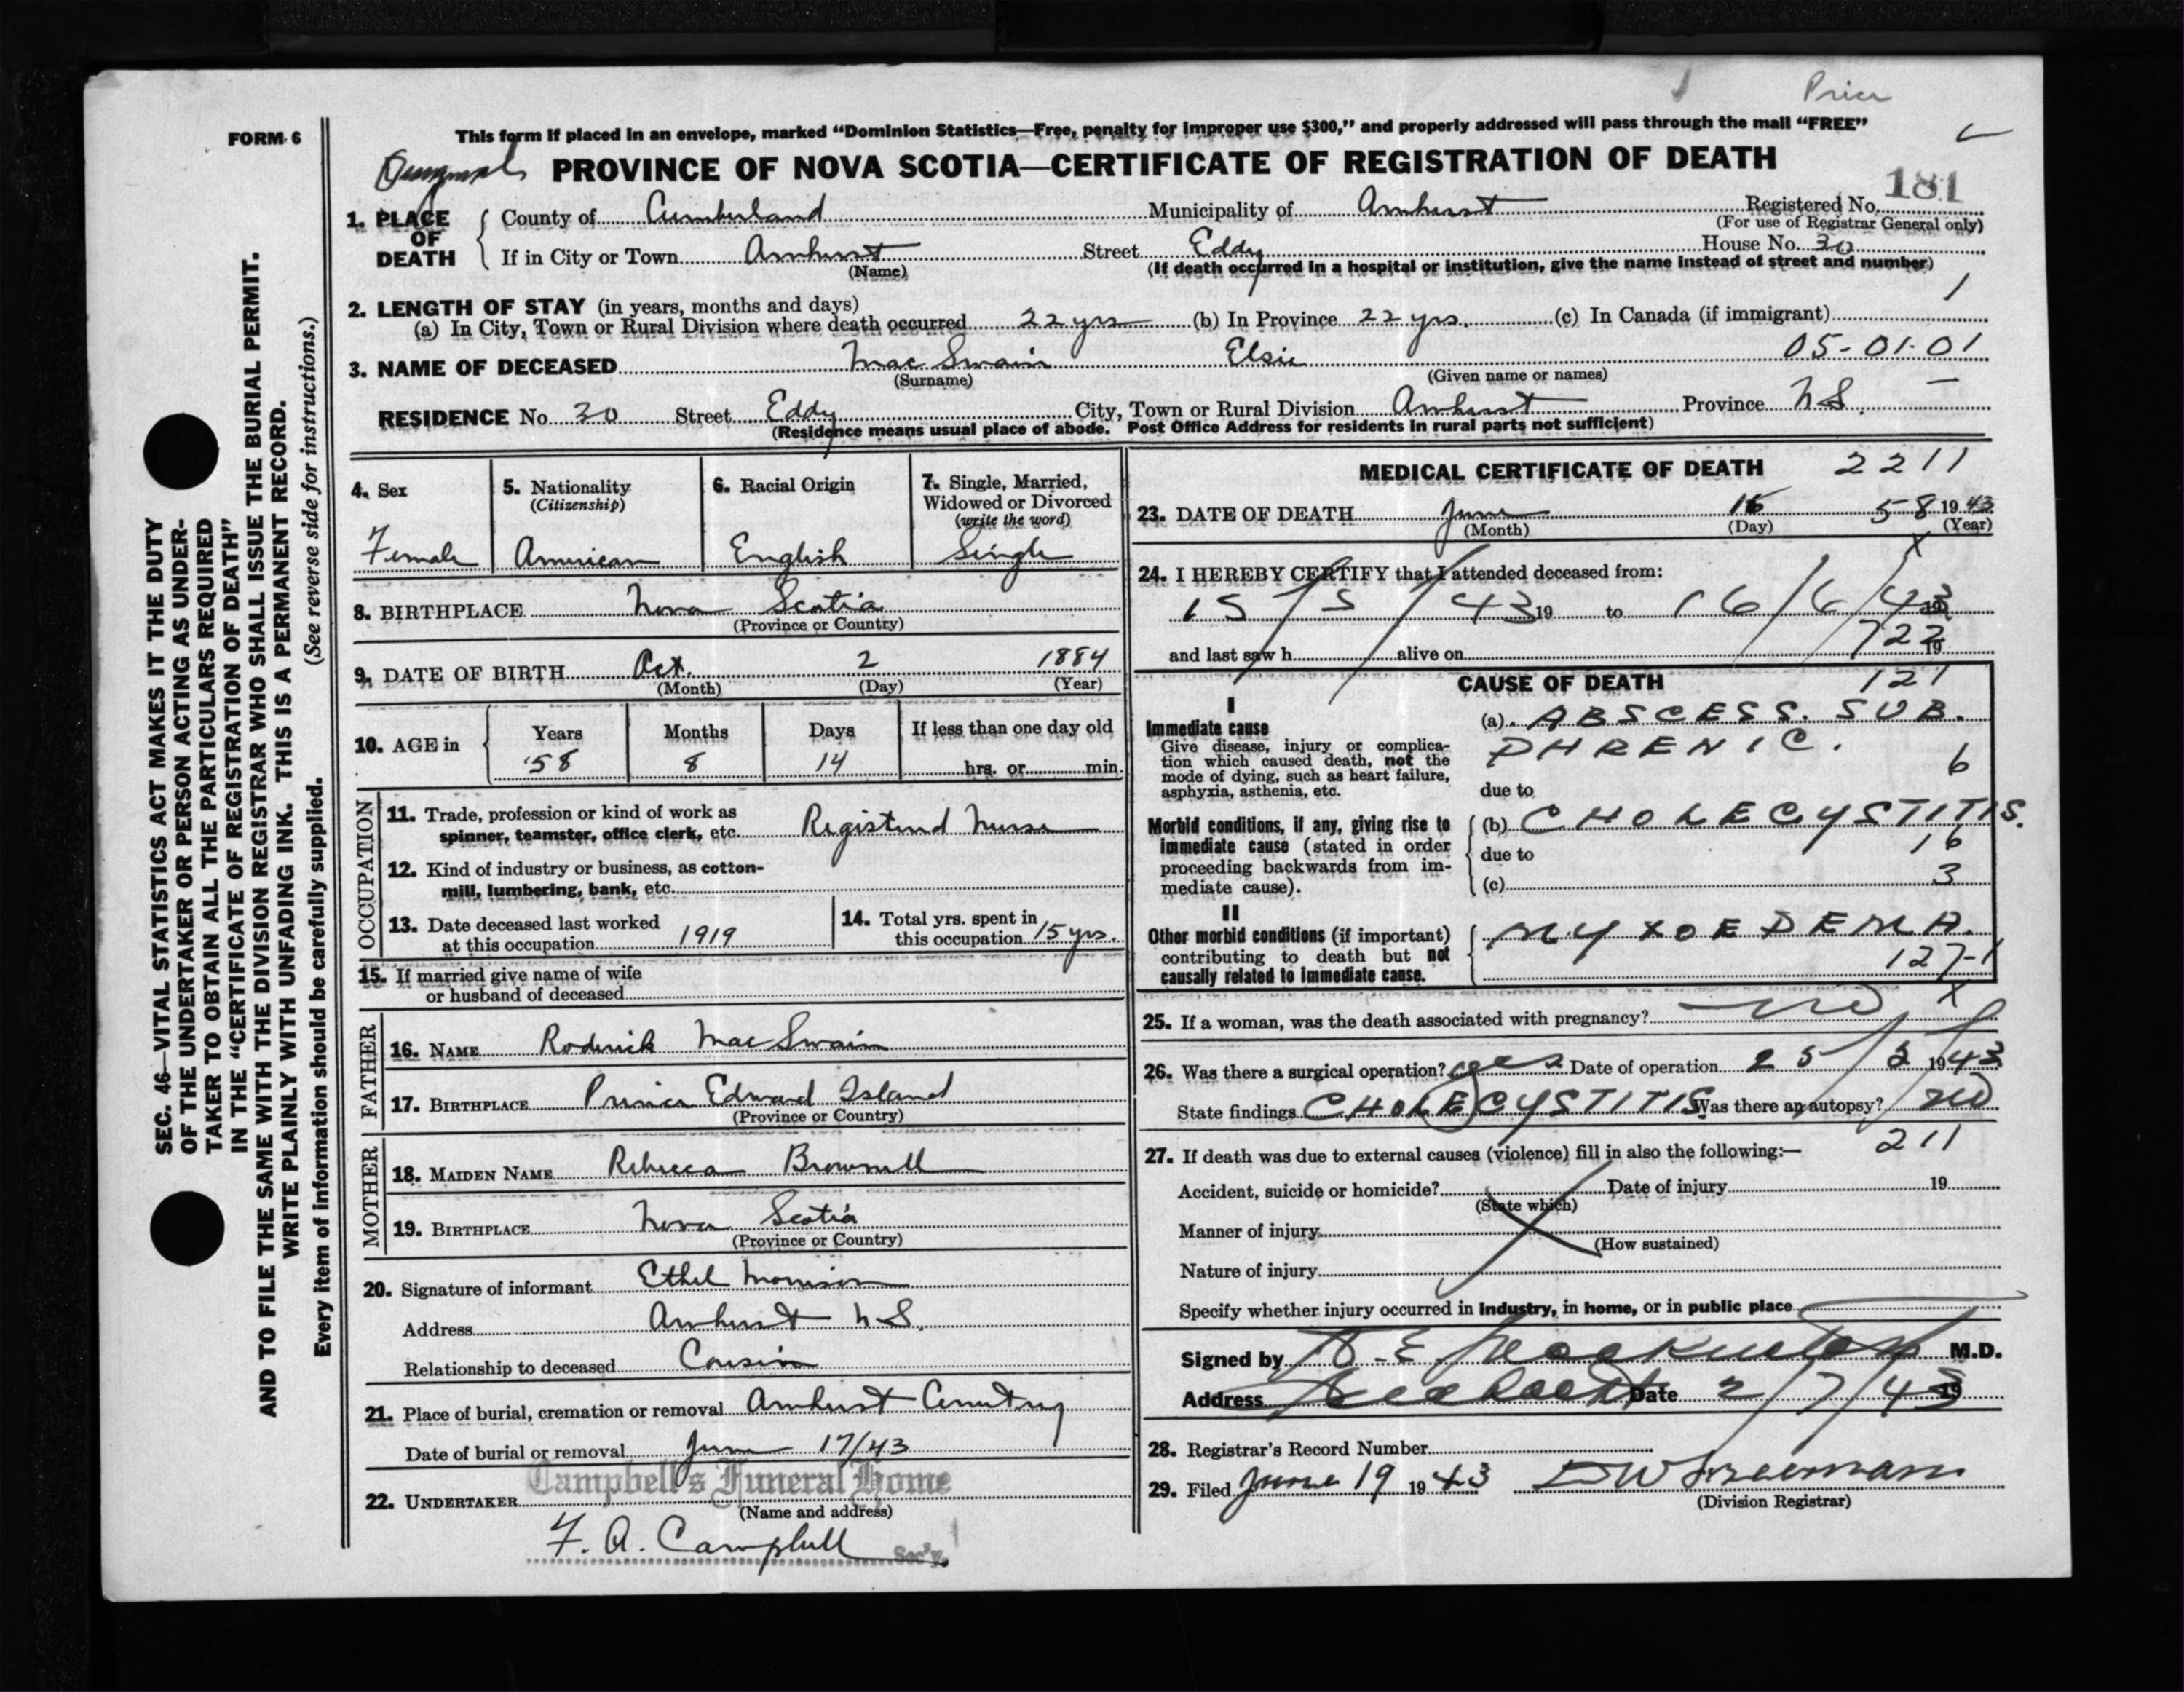 Price
FORM 6
This form if placed in an envelope, marked “Dominion Statistics—Free, penalty for improper use $300,” and properly addressed will pass through the mail “FREE”
PROVINCE OF NOVA SCOTIA—CERTIFICATE OF REGISTRATION OF DEATH
181
1. PLACE OF DEATH
County of Cumberland Municipality of Amherst Registered No.
(For use of Registrar General only)
If in City or Town Amherst Street Eddy House No. 30
(Name) (If death occurred in a hospital or institution, give the name instead of street and number)
2. LENGTH OF STAY (in years, months and days) 1
(a) In City, Town or Rural Division where death occurred 22 yrs (b) In Province 22 yrs. (c) In Canada (if immigrant)
3. NAME OF DECEASED MacSwain Elsie 05-01-01
(Surname) (Given name or names)
RESIDENCE No. 30 Street Eddy City, Town or Rural Division Amherst Province N.S. —
(Residence means usual place of abode. Post Office Address for residents in rural parts not sufficient)
SEC. 46—VITAL STATISTICS ACT MAKES IT THE DUTY
OF THE UNDERTAKER OR PERSON ACTING AS UNDER-
TAKER TO OBTAIN ALL THE PARTICULARS REQUIRED
IN THE “CERTIFICATE OF REGISTRATION OF DEATH”
AND TO FILE THE SAME WITH THE DIVISION REGISTRAR WHO SHALL ISSUE THE BURIAL PERMIT.
WRITE PLAINLY WITH UNFADING INK. THIS IS A PERMANENT RECORD.
Every item of information should be carefully supplied. (See reverse side for instructions.)
4. Sex
Female
5. Nationality
(Citizenship)
American
6. Racial Origin
English
7. Single, Married,
Widowed or Divorced
(write the word)
Single
8. BIRTHPLACE Nova Scotia
(Province or Country)
9. DATE OF BIRTH Oct. 2 1884
(Month) (Day) (Year)
10. AGE in
Years Months Days If less than one day old
58 8 14 hrs. or min.
OCCUPATION
11. Trade, profession or kind of work as
spinner, teamster, office clerk, etc. Registered Nurse
12. Kind of industry or business, as cotton-
mill, lumbering, bank, etc.
13. Date deceased last worked
at this occupation 1919
14. Total yrs. spent in
this occupation 15 yrs.
15. If married give name of wife
or husband of deceased
FATHER
16. NAME Roderick MacSwain
17. BIRTHPLACE Prince Edward Island
(Province or Country)
MOTHER
18. MAIDEN NAME Rebecca Brownell
19. BIRTHPLACE Nova Scotia
(Province or Country)
20. Signature of informant Ethel Morrison
Address Amherst N.S.
Relationship to deceased Cousin
21. Place of burial, cremation or removal Amherst Cemetery
Date of burial or removal June 17/43
Campbell's Funeral Home
22. UNDERTAKER
(Name and address)
F. A. Campbell Sec'y.
MEDICAL CERTIFICATE OF DEATH 2211
23. DATE OF DEATH June 16 58 1943
(Month) (Day) (Year)
X
24. I HEREBY CERTIFY that I attended deceased from:
15/5/43 19 to 16/6/43 19
722
and last saw h alive on 19
CAUSE OF DEATH 121
I
Immediate cause
Give disease, injury or complica-
tion which caused death, not the
mode of dying, such as heart failure,
asphyxia, asthenia, etc.
(a) ABSCESS. SUB.
PHRENIC.
6
due to
Morbid conditions, if any, giving rise to
immediate cause (stated in order
proceeding backwards from im-
mediate cause).
(b) CHOLECYSTITIS.
due to 16
(c) 3
II
Other morbid conditions (if important)
contributing to death but not
causally related to immediate cause.
MYXOEDEMA.
127-1
X
25. If a woman, was the death associated with pregnancy? no
26. Was there a surgical operation? yes Date of operation 25/2/1943
State findings CHOLECYSTITIS Was there an autopsy? no
211
27. If death was due to external causes (violence) fill in also the following:—
Accident, suicide or homicide? Date of injury 19
(State which)
Manner of injury
(How sustained)
Nature of injury
Specify whether injury occurred in industry, in home, or in public place
Signed by M.D.
Address Date 2/7/43 19
28. Registrar's Record Number
29. Filed June 19 1943 D W Freeman
(Division Registrar)